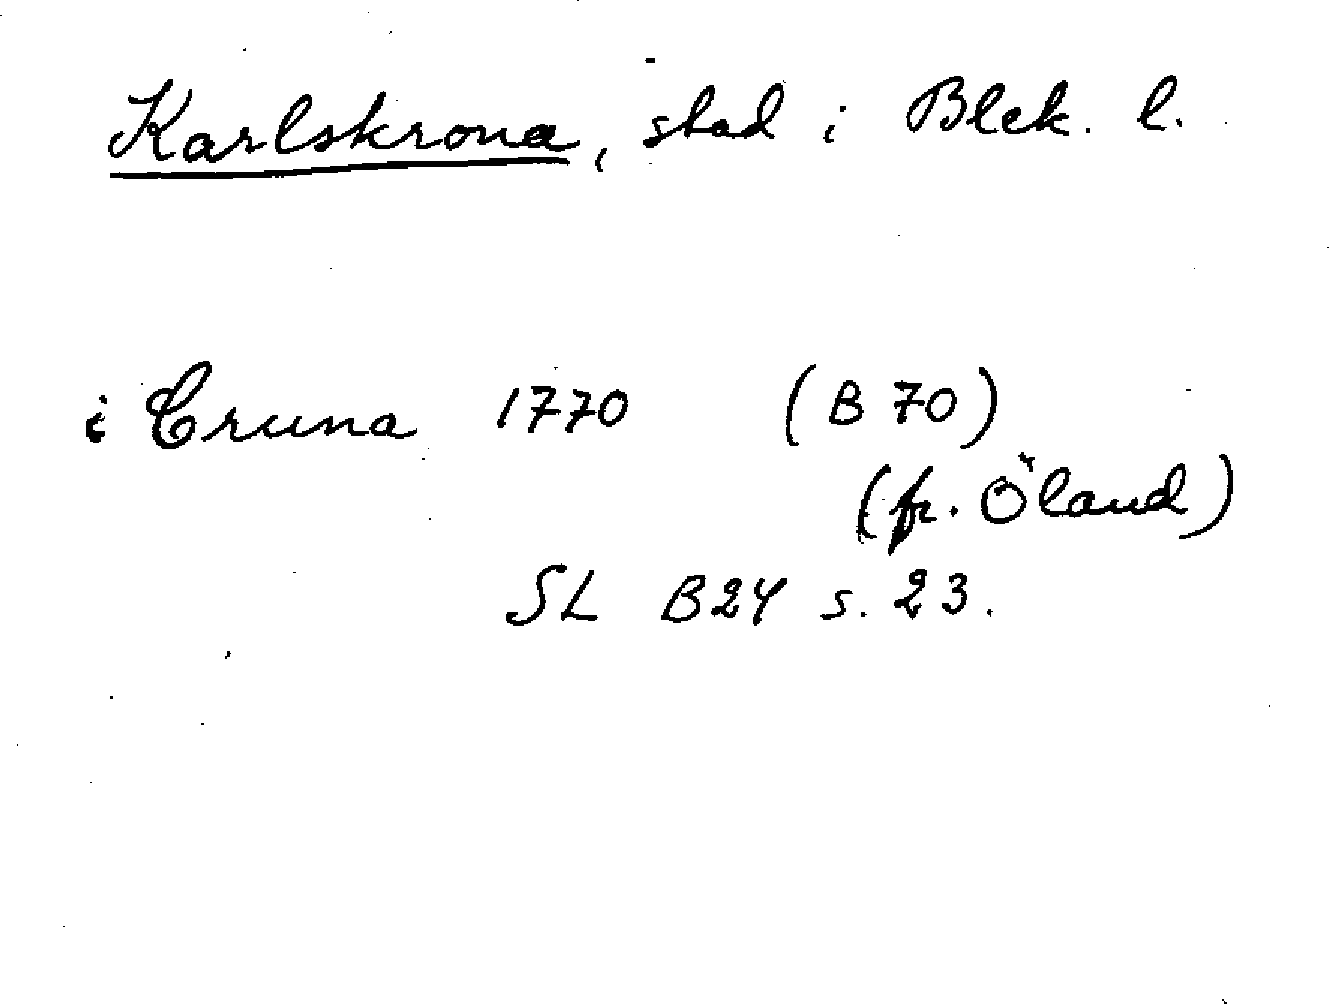 Karlskrona, stad i Blek. l.
i Cruna 1770 (B 70)
(fr. Öland)
SL B24 s. 23.